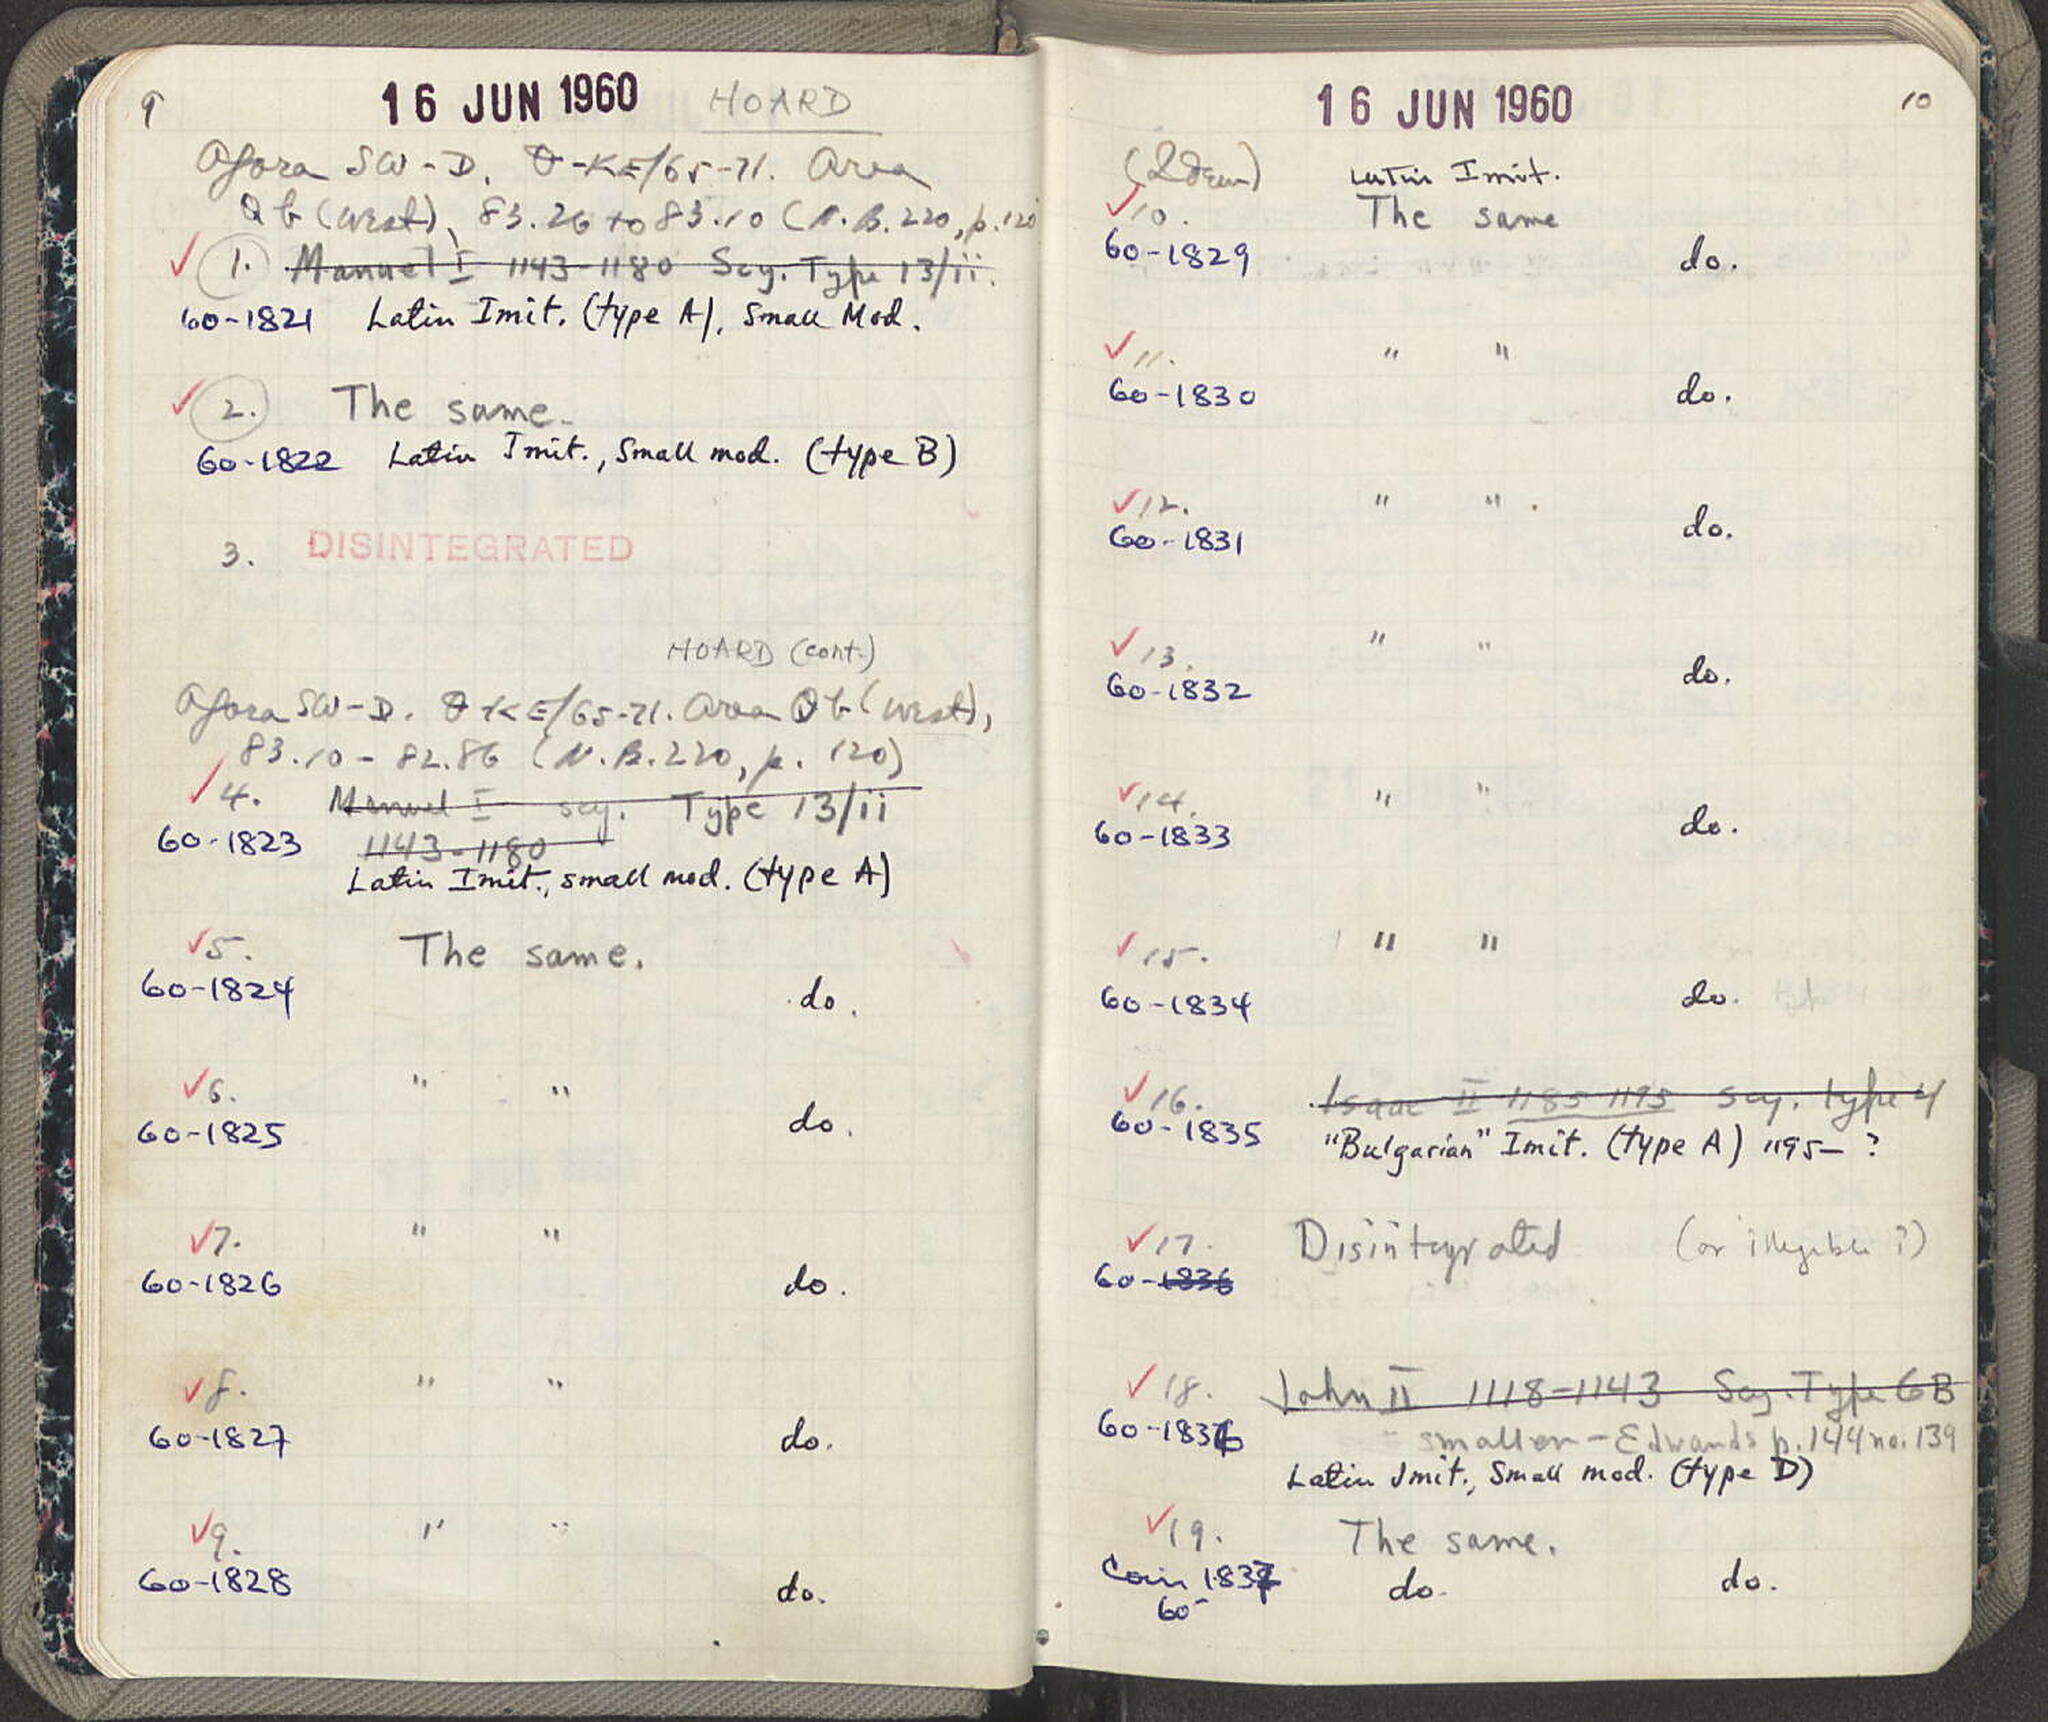 9
16 JUN 1960 HOARD
Agora SW-D. -KE/65-71. Area
Qb (west), 83.26 to 83.10 (N.B. 220, p. 120
1. Manuel I 1143-1180 Scy. Type 13/ii.
60-1821 Latin Imit. (type A), Small Mod.
2. The same.
60-1822 Latin Imit., Small mod. (type B)
3. DISINTEGRATED
HOARD (cont.)
Agora SW-D. -KE/65-71. Area Qb (west),
83.10 - 82.86 (N.B. 220, p. 120)
4. Manuel I scy. Type 13/ii
60-1823 1143-1180
Latin Imit., small mod. (type A)
5. The same.
60-1824 do.
6. " "
60-1825 do.
7. " "
60-1826 do.
8. " "
60-1827 do.
9. " "
60-1828 do.
16 JUN 1960 10
(Idem) Latin Imit.
10. The same
60-1829 do.
11. " "
60-1830 do.
12. " " .
60-1831 do.
13. " "
60-1832 do.
14. " "
60-1833 do.
15. " "
60-1834 do.
16. Isaac II 1185-1195 Scy. type 4
60-1835 "Bulgarian" Imit. (type A) 1195- ?
17. Disintegrated (or illegible ?)
60-1836
18. John II 1118-1143 Scy. Type 6B
60-1836 smaller - Edwards p. 144 no. 139
Latin Imit., Small mod. (type D)
19. The same.
Coin 1837 do. do.
60-